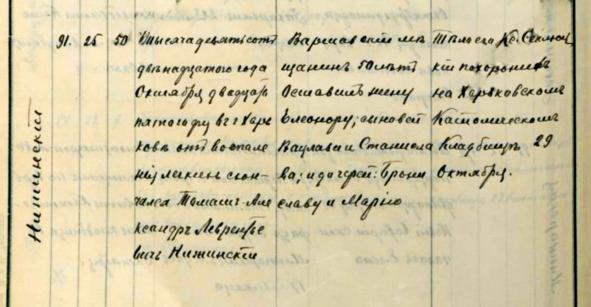 Нижинскій
91. 25 50
Тысяча девятьсотъ
двѣнадцатого года
Октября двадцать
пятого дня в г Харь
ковѣ отъ воспале
нія легкихъ скон-
чался Томашъ-Але
ксандръ Леврентье
вичъ Нижинскій
Варшавскій мѣ
щанинъ 50 лѣтъ
Оставилъ жену
Елеонору; сыновей
Вацлава и Станисла
ва; и дочерей: Брони
славу и Марію
Тѣло его Кс.
кій похоронилъ
на Харьковскомъ
Католическомъ
Кладбищѣ 29
Октября.